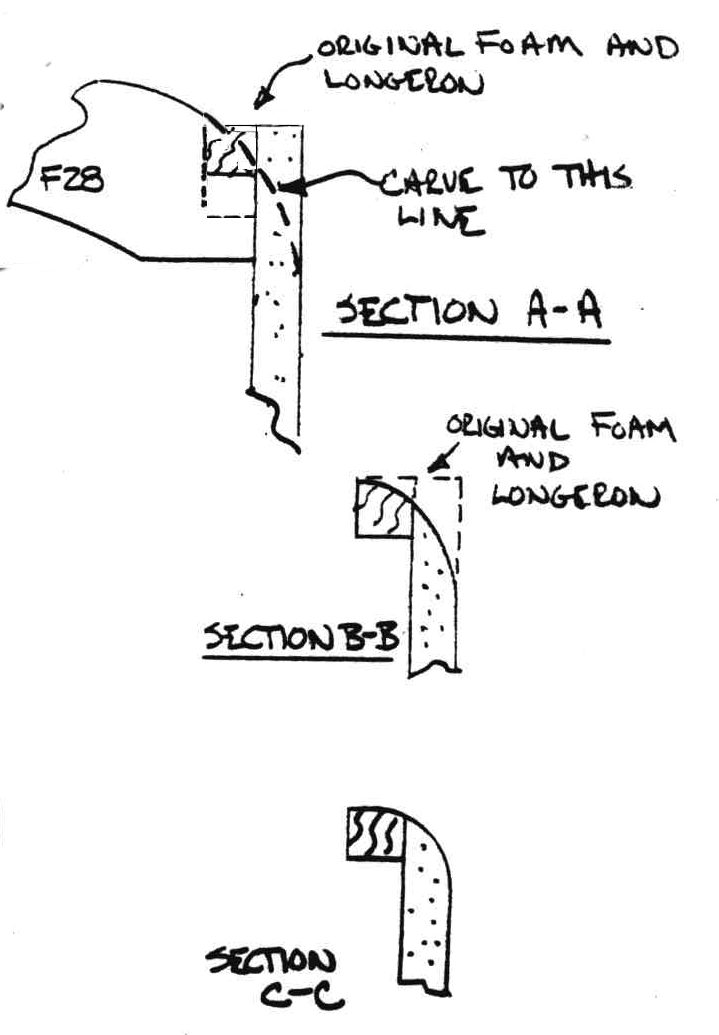 ORIGINAL FOAM AND
LONGERON
F28
CARVE TO THIS
LINE
SECTION A-A
ORIGINAL FOAM
AND
LONGERON
SECTION B-B
SECTION
C-C